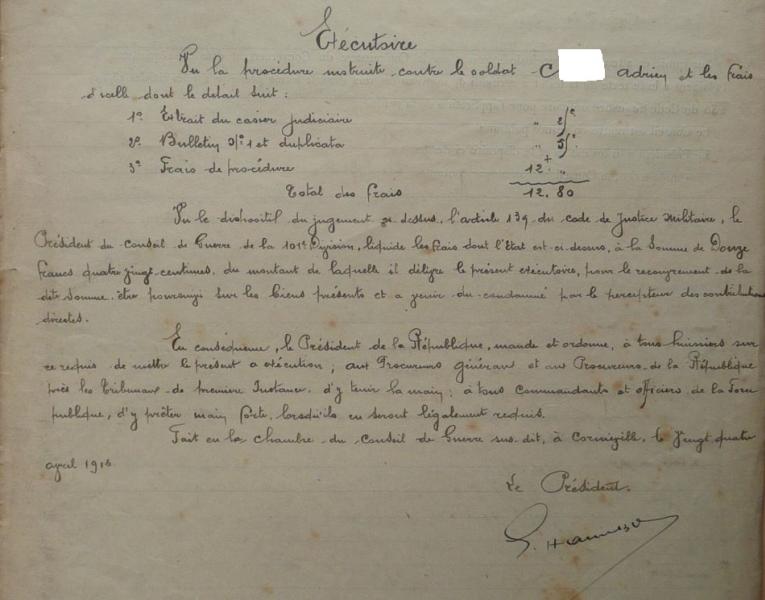 Exécutoire
Vu la procédure instruite contre le soldat C Adrien et les frais
d'icelle dont le détail suit :
1º Extrait du casier judiciaire
2º Bulletin Nº 1 et duplicata
3º Frais de procédure 12 "
Total des frais 12,80
Vu le dispositif du jugement ci dessus, l'article 139 du code de Justice Militaire, le
Président du conseil de Guerre de la 101e Division, liquide les frais dont l'Etat est ci dessus, à la Somme de Douze
francs quatre vingt centimes, du montant de laquelle il délivre le présent exécutoire, pour le recouvrement de la
dite Somme être poursuivi sur les biens présents et a venir du condamné par le percepteur des contributions
directes.
En conséquence, le Président de la République, mande et ordonne, à tous huissiers sur
ce requis de mettre le présent a exécution ; aux Procureurs généraux et aux Procureurs de la République
près les Tribunaux de première Instance d'y tenir la main ; à tous commandants et officiers de la Force
publique, d'y prêter main forte lorsqu'ils en seront légalement requis.
Fait en la chambre du Conseil de Guerre sus-dit, à le Vingt quatre
avril 1916
Le Président.